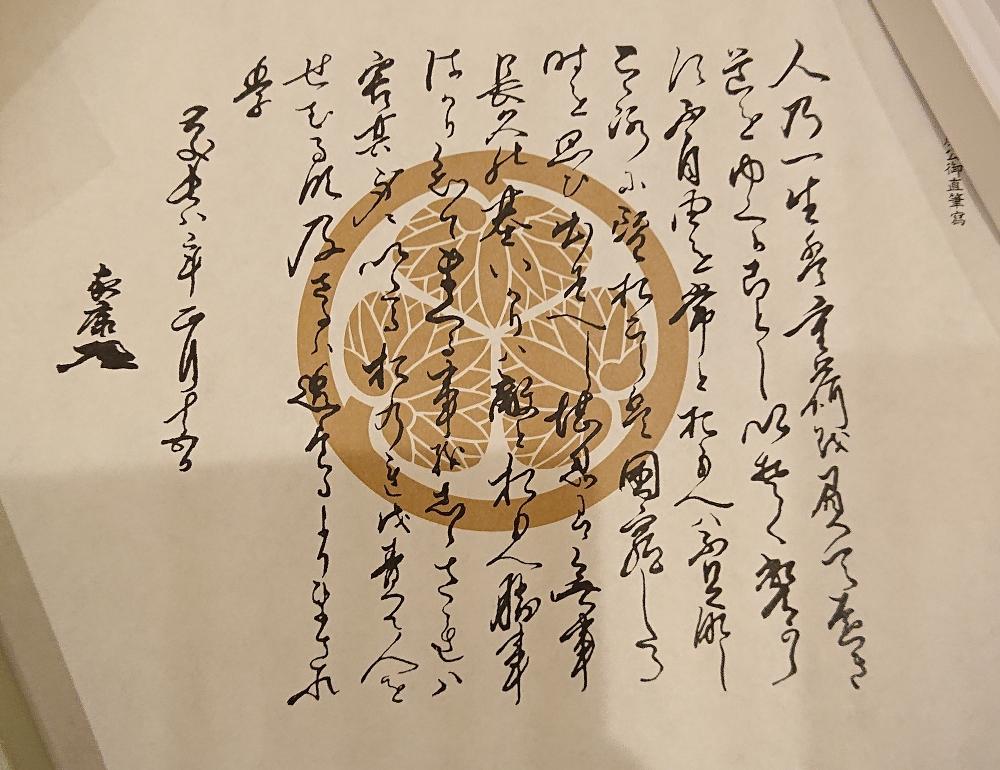 人の一生は重荷を負て遠き
道をゆくかことしいそくへから
す不自由を常とおもへハ不足なし
こころに望おこらは困窮したる
時を思ひ出すへし堪忍は無事
長久の基いかりハ敵とおもへ勝事
はかり知てまくる事をしらされハ
害其身にいたるおのれを責て人を
せむるな及さるハ過たるよりまされ
り
慶長八年正月十五日
家康
公御直筆寫